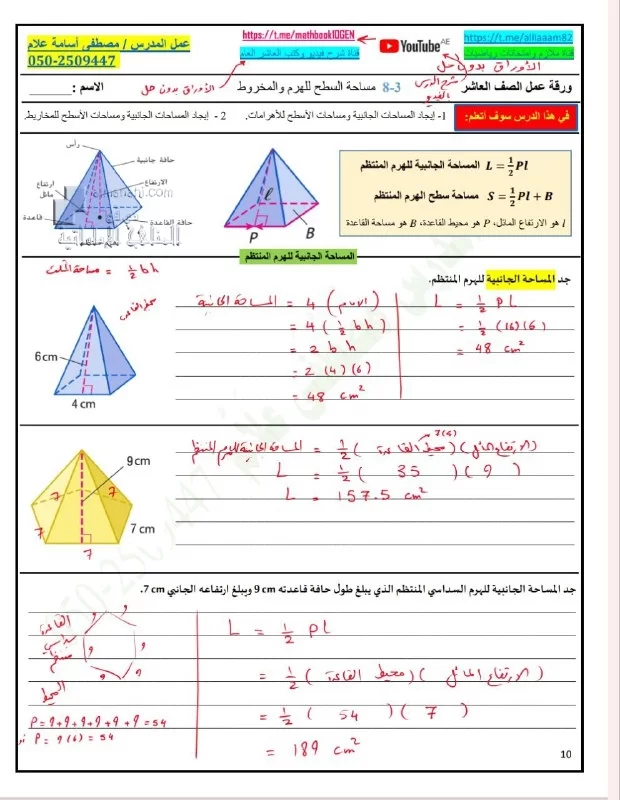 عمل المدرس / مصطفى أسامة علام
050-2509447
https://t.me/mathbook10GEN
قناة شرح فيديو وكتب العاشر العام
YouTube AE
https://t.me/allaaam82
قناة ملازم وامتحانات رياضيات
الأوراق بدون حل
ورقة عمل الصف العاشر
شرح الدرس
فيديو
8-3 مساحة السطح للهرم والمخروط
الأوراق بدون حل
الاسم : ______
في هذا الدرس سوف أتعلم:
1- إيجاد المساحات الجانبية ومساحات الأسطح للأهرامات.
2 - إيجاد المساحات الجانبية ومساحات الأسطح للمخاريط.
رأس
حافة جانبية
الارتفاع
ارتفاع
مائل
قاعدة
حافة القاعدة
P
B
المساحة الجانبية للهرم المنتظم L = 1/2 Pl
مساحة سطح الهرم المنتظم S = 1/2 Pl + B
l هو الارتفاع المائل، P هو محيط القاعدة، B هو مساحة القاعدة
المساحة الجانبية للهرم المنتظم
جد المساحة الجانبية للهرم المنتظم.
مساحة المثلث = 1/2 bh
6 cm
4 cm
المساحة الجانبية = 4 (
= 4 ( 1/2 bh )
= 2 b h
= 2 (4) (6)
= 48 cm²
L = 1/2 PL
= 1/2 (16)(6)
= 48 cm²
9 cm
7 cm
7
7
7
7
7(5)
المساحة الجانبية للهرم المنتظم = 1/2 ( محيط القاعدة ) ( الارتفاع المائل )
L = 1/2 ( 35 ) ( 9 )
L = 157.5 cm²
جد المساحة الجانبية للهرم السداسي المنتظم الذي يبلغ طول حافة قاعدته 9 cm ويبلغ ارتفاعه الجانبي 7 cm.
القاعدة
سداسي
منتظم
9
9
9
9
9
9
المحيط
P = 9+9+9+9+9+9 = 54
أو P = 9(6) = 54
L = 1/2 Pl
= 1/2 ( محيط القاعدة ) ( الارتفاع المائل )
= 1/2 ( 54 ) ( 7 )
= 189 cm²
10